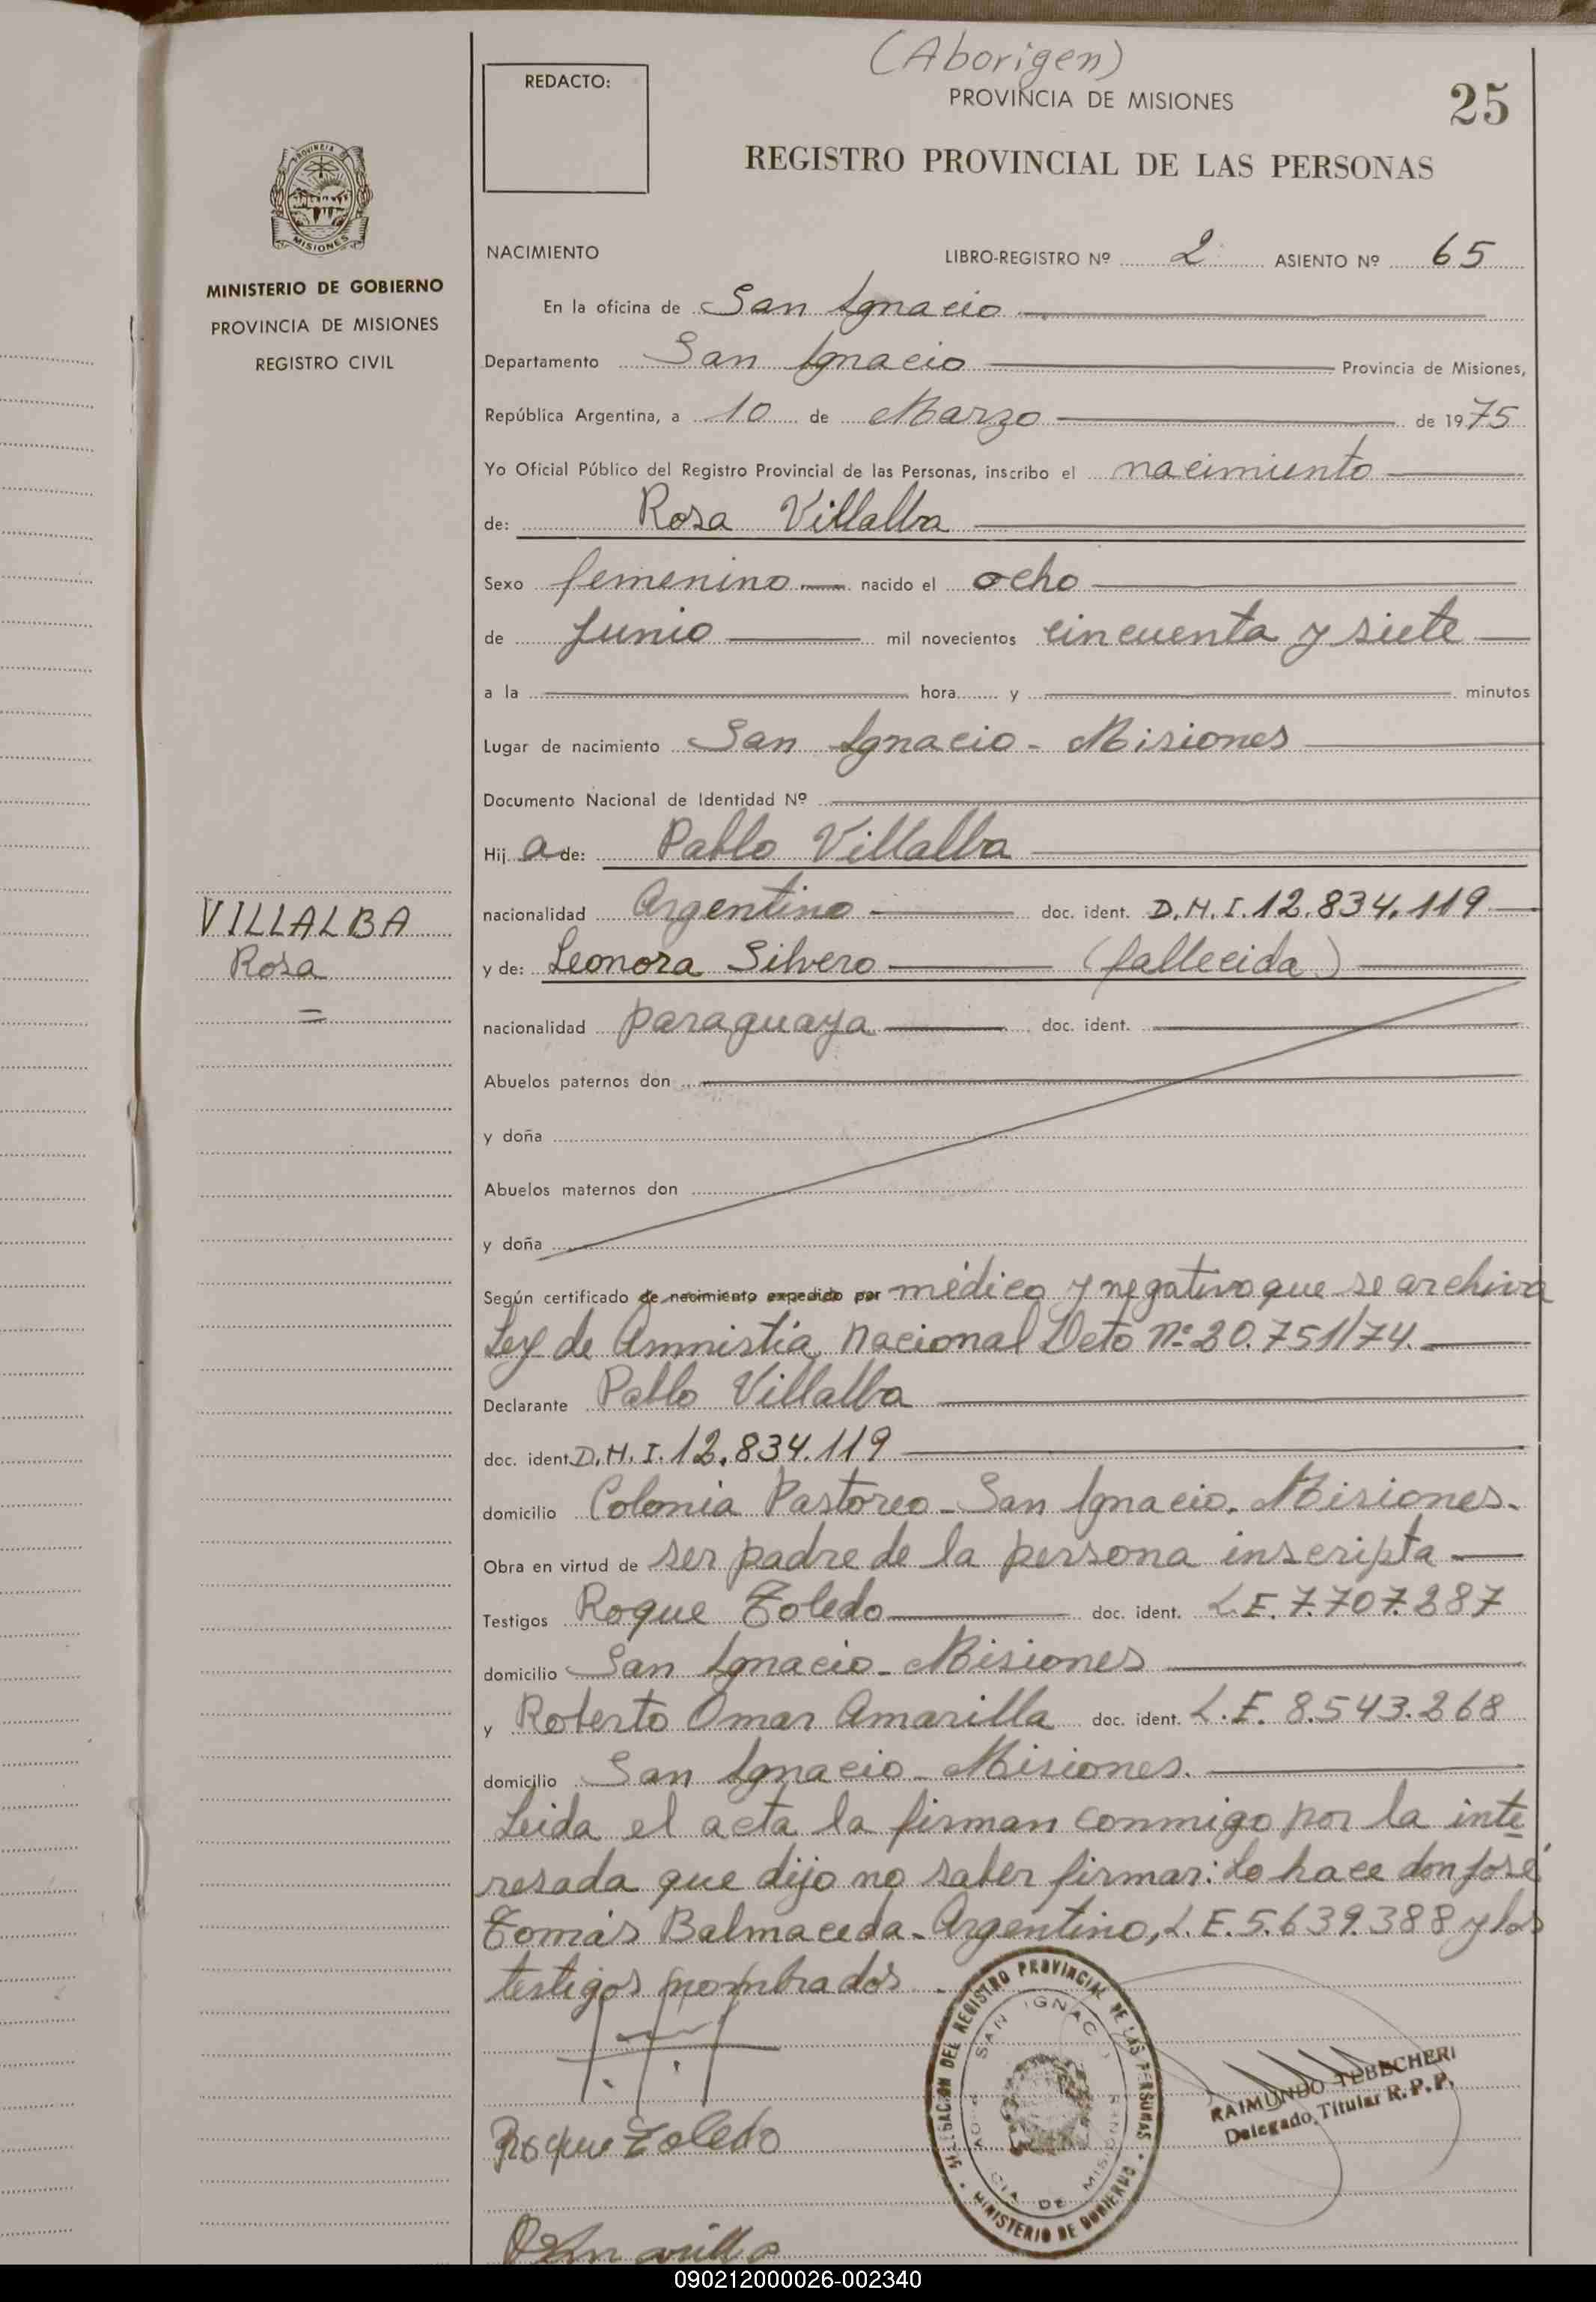 (Aborigen)
REDACTO:
PROVINCIA DE MISIONES
25
REGISTRO PROVINCIAL DE LAS PERSONAS
PROVINCIA
MISIONES
MINISTERIO DE GOBIERNO
PROVINCIA DE MISIONES
REGISTRO CIVIL
NACIMIENTO LIBRO-REGISTRO Nº 2 ASIENTO Nº 65
En la oficina de San Ignacio
Departamento San Ignacio Provincia de Misiones,
República Argentina, a 10 de Marzo de 1975
Yo Oficial Público del Registro Provincial de las Personas, inscribo el nacimiento
de: Rosa Villalba
Sexo femenino nacido el ocho
de Junio mil novecientos cincuenta y siete
a la hora y minutos
Lugar de nacimiento San Ignacio - Misiones
Documento Nacional de Identidad Nº
Hij a de: Pablo Villalba
VILLALBA
Rosa
=
nacionalidad Argentino doc. ident. D.N.I. 12.834.119
y de: Leonora Silvero (fallecida)
nacionalidad paraguaya doc. ident.
Abuelos paternos don
y doña
Abuelos maternos don
y doña
Según certificado de nacimiento expedido por médico y negativo que se archiva
Ley de Amnistía Nacional Dcto Nº 20.751/74.
Declarante Pablo Villalba
doc. ident. D.N.I. 12.834.119
domicilio Colonia Pastoreo - San Ignacio. Misiones.
Obra en virtud de ser padre de la persona inscripta
Testigos Roque Toledo doc. ident. L.E. 7.707.287
domicilio San Ignacio - Misiones
y Roberto Omar Amarilla doc. ident. L.E. 8.543.268
domicilio San Ignacio - Misiones.
Leida el acta la firman conmigo por la inte
resada que dijo no saber firmar: lo hace don José
Tomás Balmaceda - Argentino, L.E. 5.639.388 y los
testigos nombrados
DELEGACION DEL REGISTRO PROVINCIAL DE LAS PERSONAS
SAN IGNACIO
DE MISIONES
MINISTERIO DE GOBIERNO
RAIMUNDO TEBECHERI
Delegado Titular R.P.P.
Roque Toledo
090212000026-002340